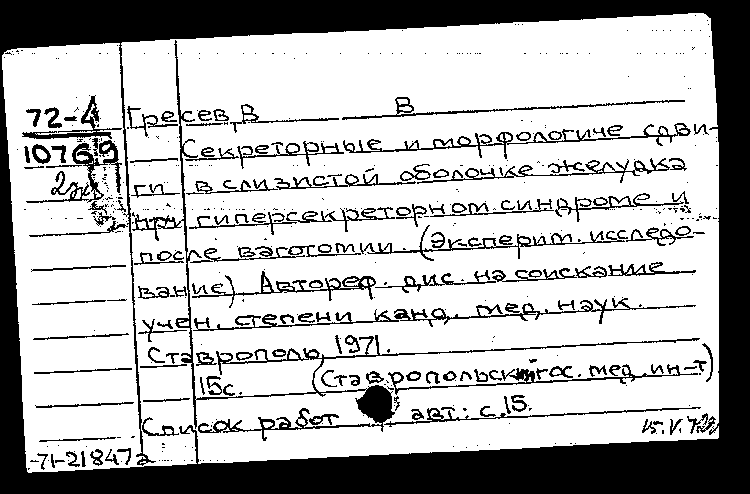 72-4
10769
2 экз
Гресев, В В
Секреторные и морфологиче сдви-
ги в слизистой оболочке желудка
при гиперсекреторном синдроме и
после ваготомии. (Эксперим. исследо-
вание). Автореф. дис. на соискание
учен. степени канд. мед. наук.
Ставрополь, 1971.
15с. (Ставропольский гос. мед. ин-т)
Список работ авт.: с.15.
71-21847а